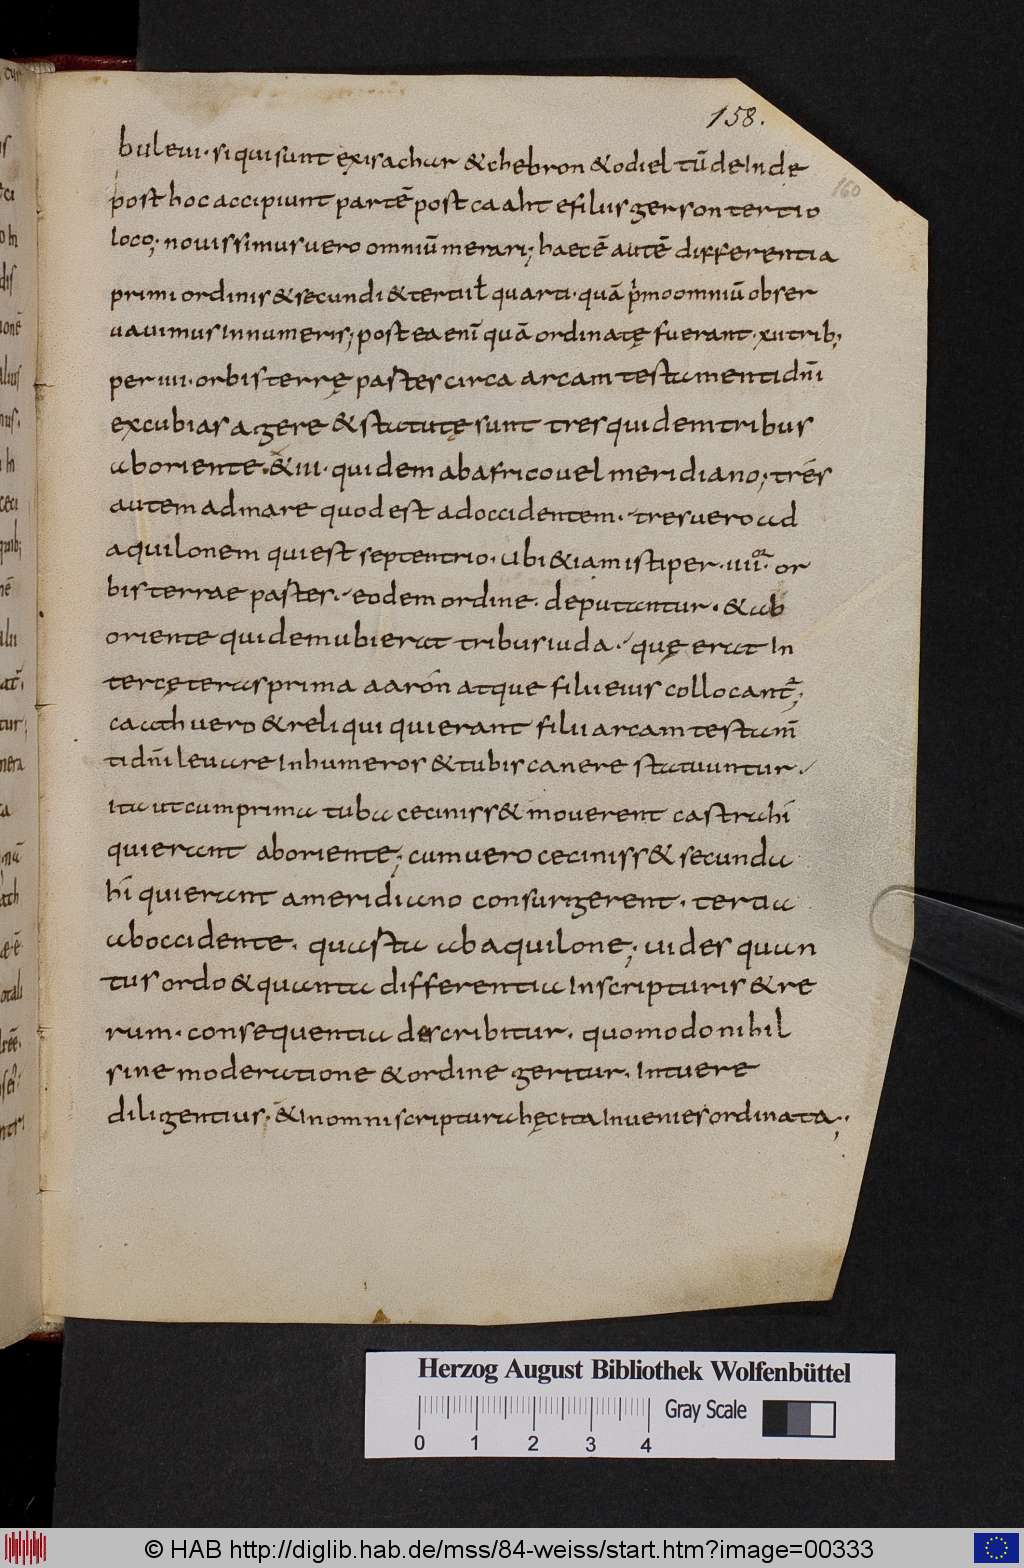 158.
160
buleui· si qui sunt exisachar & chebron & odiel tū deInde
post hoc accipiunt partē post caaht e filius gerson tertio
loco; nouissimus uero omniū merari; haec ē autē differentia
primi ordinis & secundi & tertii ł quarti· quā p̍mo omniū obser
uauimus In numeris; post ea enī quā ordinatę fuerant· xii trib;
per iiii· orbis terrę partes circa arcam testamenti dn̄i
excubias agere & statutę sunt tres quidem tribus
ab oriente· & iii· quidem ab africo uel meridiano; tres
autem ad mare quod est ad occidentem· tres uero ad
aquilonem qui est septentrio· ubi &iam isti per· iiii or· or
bis terrae partes· eodem ordine· deputantur· & ab
oriente quidem ubi erat tribus iuda· quę erat In
tercęteras prima aarón atque filii eius collocant̄;
caath uero & reliqui qui erant filii arcam testam̄
ti dn̄i leuare In humeros & tubis canere statuuntur·
ita ut cum prima tuba ceciniss& mouerent castra hi
qui erant ab oriente; cum uero ceciniss& secunda
hi qui erant a meridiano consurgerent· tertia
ab occidente· quarta ab aquilone; uides quan
tus ordo & quanta differentia In scripturis & re
rum· consequentia describitur· quomodo nihil
sine moderatione & ordine geritur· Intuere
diligentius· & In omni scriptura hęc ita Inuenies ordinata;·
Herzog August Bibliothek Wolfenbüttel
Gray Scale
0 1 2 3 4
© HAB http://diglib.hab.de/mss/84-weiss/start.htm?image=00333